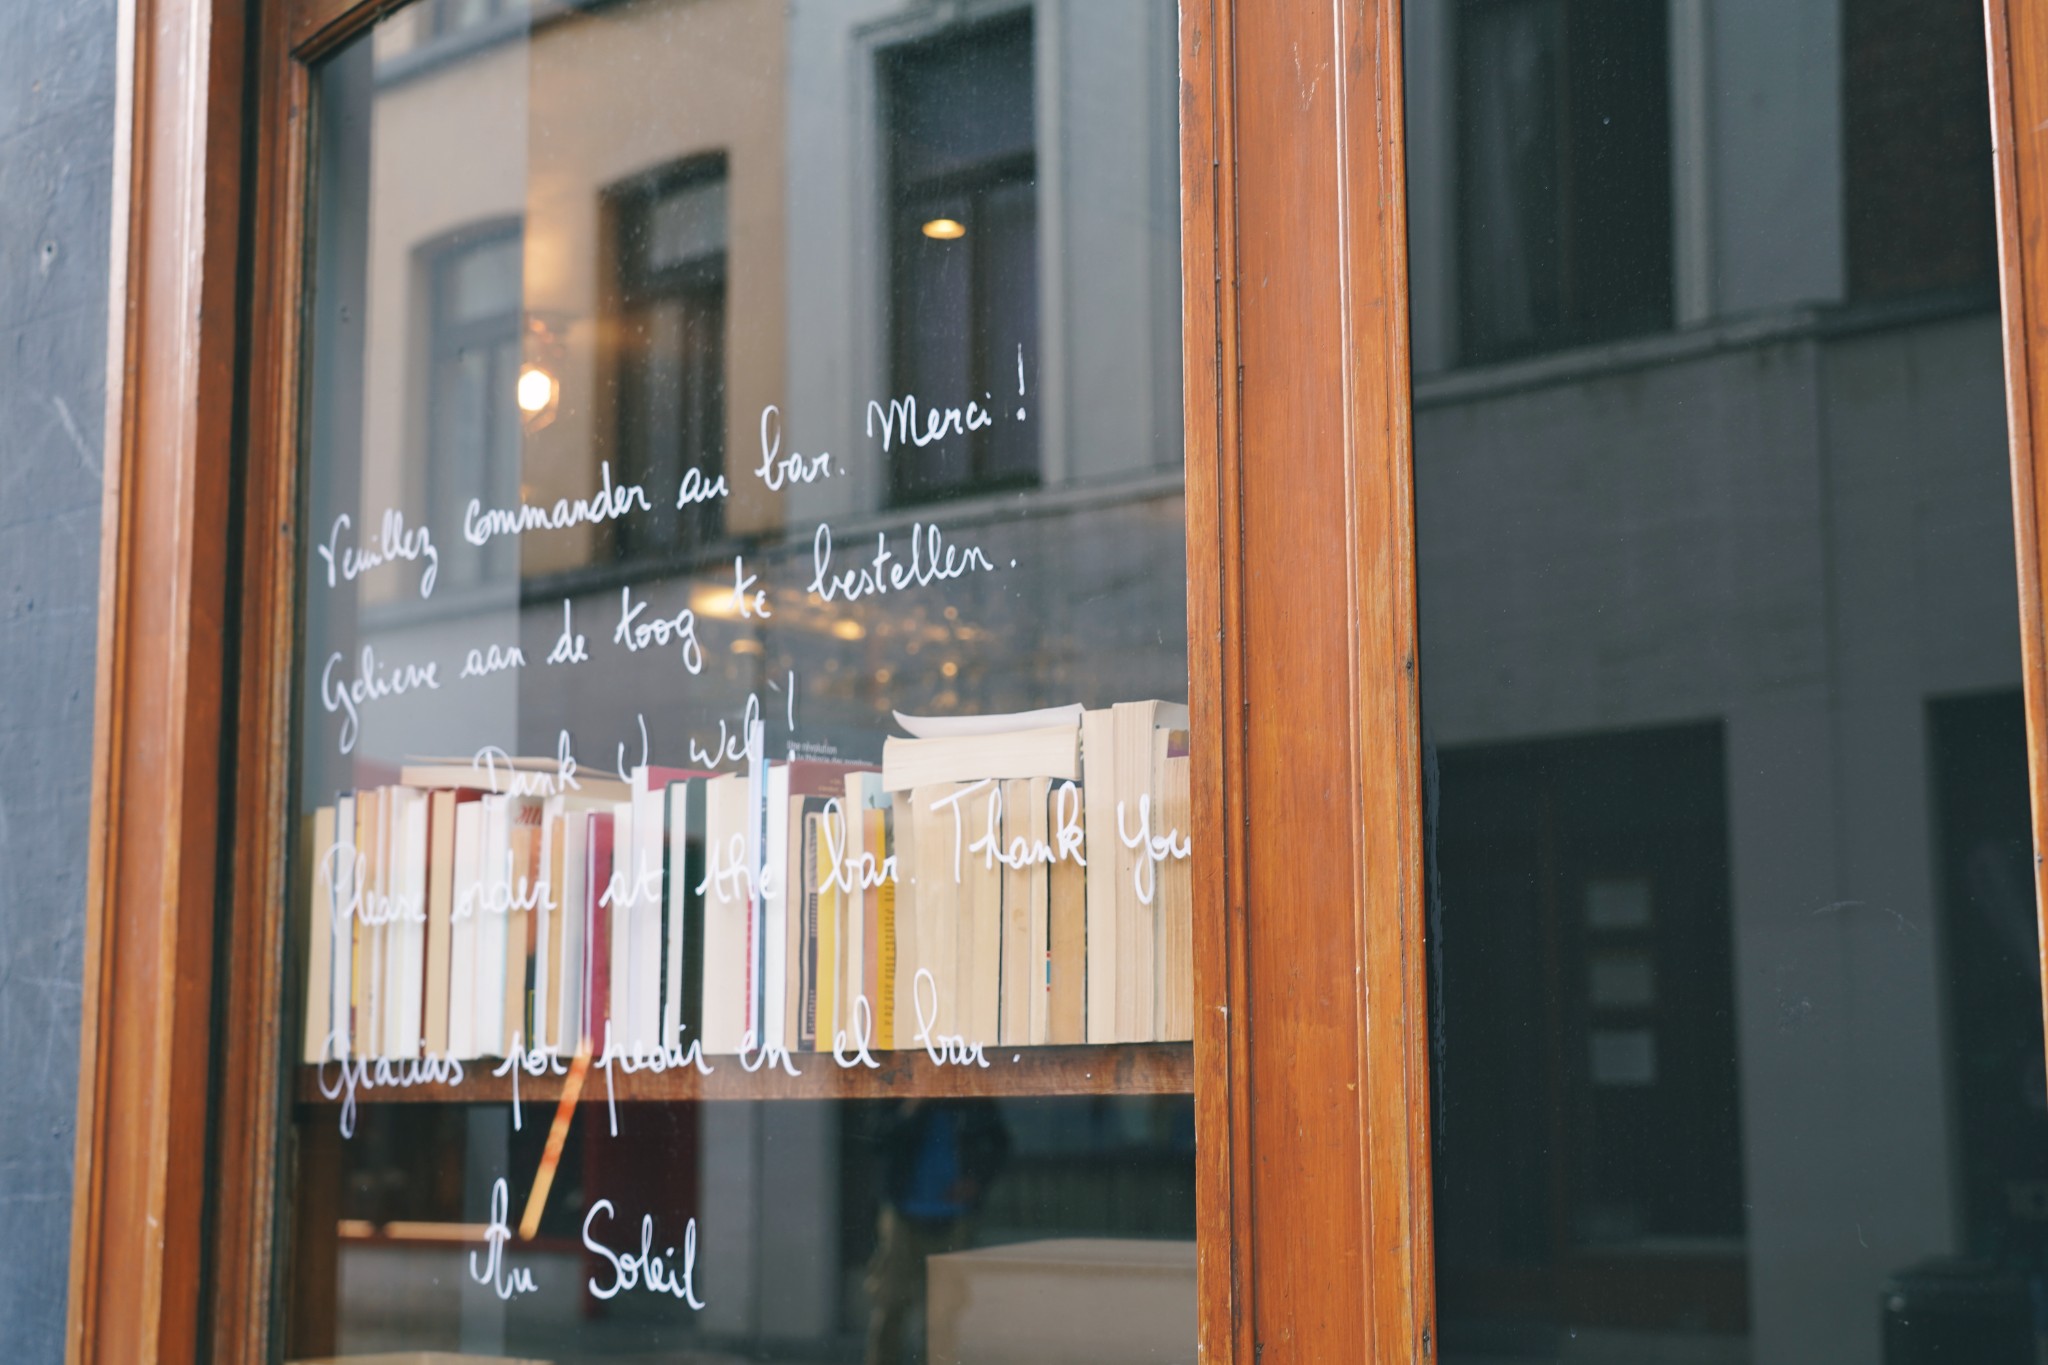 Veuillez commander au bar. Merci !
Gelieve aan de toog te bestellen.
Dank U wel !
Please order at the bar. Thank You
Gracias por pedir en el bar.
Au Soleil
Une révolution